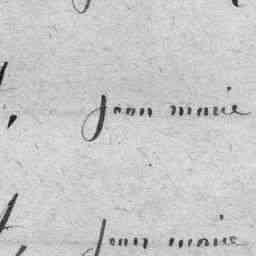 jean marie
jean marie